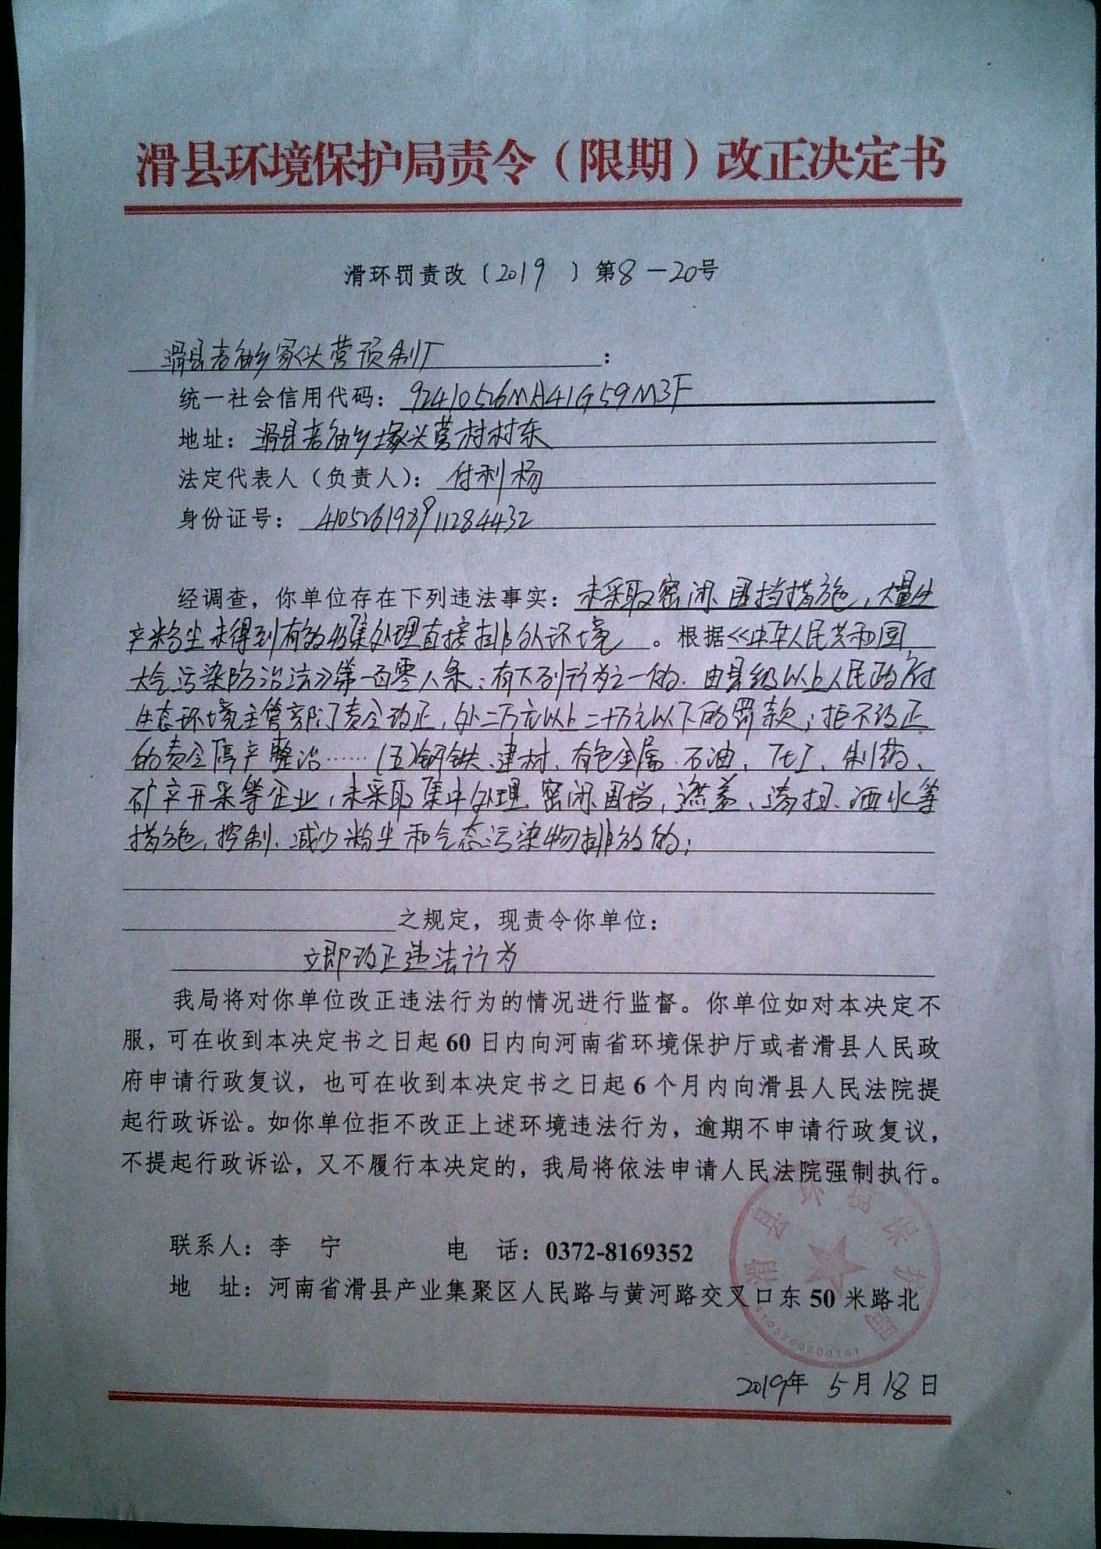 滑县环境保护局责令（限期）改正决定书
滑环罚责改〔2019 〕第8-20号
滑县老庙乡冢头营预制厂：
统一社会信用代码：92410526MA41G59M3F
地址：滑县老庙乡塚头营村村东
法定代表人（负责人）：付利杨
身份证号：410526198911284432
经调查，你单位存在下列违法事实：未采取密闭围挡措施，大量生
产粉尘未得到有效收集处理直接排外环境。根据《中华人民共和国
大气污染防治法》第一百零八条：有下列行为之一的.由县级以上人民政府
生态环境主管部门责令改正，处二万元以上二十万元以下的罚款；拒不改正
的责令停产整治……（五）钢铁、建材、有色金属、石油、化工、制药、
矿产开采等企业，未采取集中处理、密闭、围挡，遮盖、清扫、洒水等
措施，控制、减少粉尘和气态污染物排放的；
之规定，现责令你单位：
立即改正违法行为
我局将对你单位改正违法行为的情况进行监督。你单位如对本决定不
服，可在收到本决定书之日起60日内向河南省环境保护厅或者滑县人民政
府申请行政复议，也可在收到本决定书之日起6个月内向滑县人民法院提
起行政诉讼。如你单位拒不改正上述环境违法行为，逾期不申请行政复议，
不提起行政诉讼，又不履行本决定的，我局将依法申请人民法院强制执行。
滑县环境保护局
联系人：李 宁 电 话：0372-8169352
地 址：河南省滑县产业集聚区人民路与黄河路交叉口东50米路北
2019年5月18日